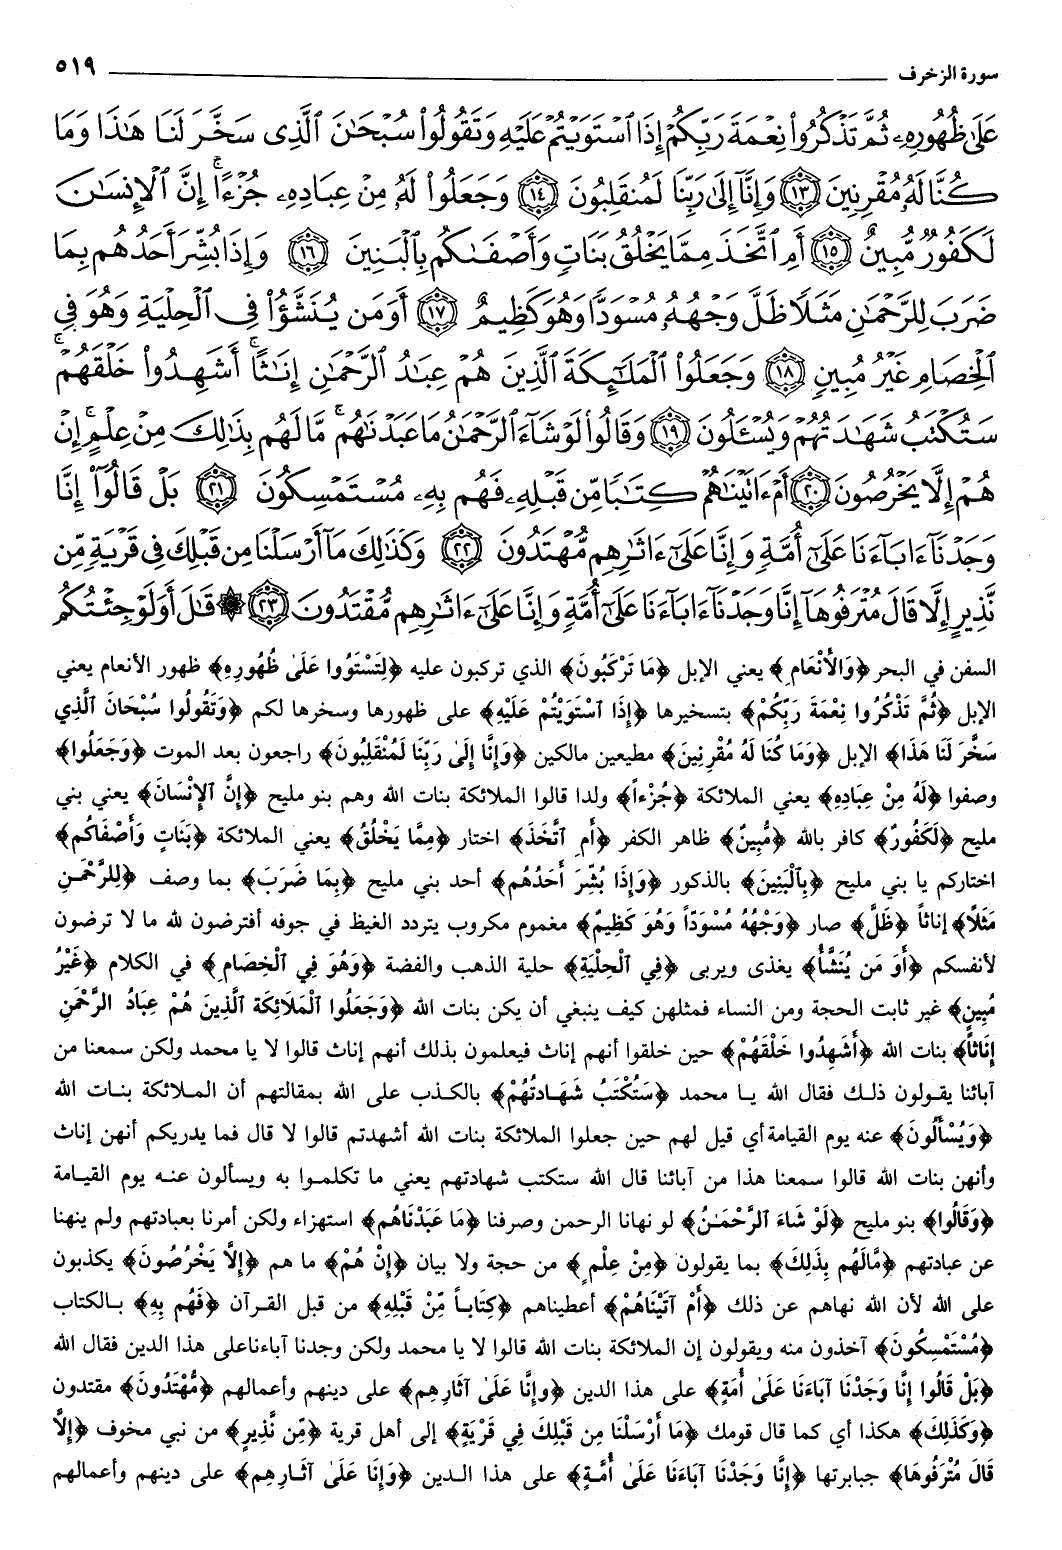 سورة الزخرف ٥١٩
عَلَىٰ ظُهُورِهِۦ ثُمَّ تَذْكُرُوا۟ نِعْمَةَ رَبِّكُمْ إِذَا ٱسْتَوَيْتُمْ عَلَيْهِ وَتَقُولُوا۟ سُبْحَٰنَ ٱلَّذِى سَخَّرَ لَنَا هَٰذَا وَمَا
كُنَّا لَهُۥ مُقْرِنِينَ ١٣ وَإِنَّآ إِلَىٰ رَبِّنَا لَمُنقَلِبُونَ ١٤ وَجَعَلُوا۟ لَهُۥ مِنْ عِبَادِهِۦ جُزْءًا ۚ إِنَّ ٱلْإِنسَٰنَ
لَكَفُورٌ مُّبِينٌ ١٥ أَمِ ٱتَّخَذَ مِمَّا يَخْلُقُ بَنَاتٍ وَأَصْفَىٰكُم بِٱلْبَنِينَ ١٦ وَإِذَا بُشِّرَ أَحَدُهُم بِمَا
ضَرَبَ لِلرَّحْمَٰنِ مَثَلًا ظَلَّ وَجْهُهُۥ مُسْوَدًّا وَهُوَ كَظِيمٌ ١٧ أَوَمَن يُنَشَّؤُا۟ فِى ٱلْحِلْيَةِ وَهُوَ فِى
ٱلْخِصَامِ غَيْرُ مُبِينٍ ١٨ وَجَعَلُوا۟ ٱلْمَلَٰٓئِكَةَ ٱلَّذِينَ هُمْ عِبَٰدُ ٱلرَّحْمَٰنِ إِنَٰثًا ۚ أَشَهِدُوا۟ خَلْقَهُمْ ۚ
سَتُكْتَبُ شَهَٰدَتُهُمْ وَيُسْـَٔلُونَ ١٩ وَقَالُوا۟ لَوْ شَآءَ ٱلرَّحْمَٰنُ مَا عَبَدْنَٰهُم ۗ مَّا لَهُم بِذَٰلِكَ مِنْ عِلْمٍ ۖ إِنْ
هُمْ إِلَّا يَخْرُصُونَ ٢٠ أَمْ ءَاتَيْنَٰهُمْ كِتَٰبًا مِّن قَبْلِهِۦ فَهُم بِهِۦ مُسْتَمْسِكُونَ ٢١ بَلْ قَالُوٓا۟ إِنَّا
وَجَدْنَآ ءَابَآءَنَا عَلَىٰٓ أُمَّةٍ وَإِنَّا عَلَىٰٓ ءَاثَٰرِهِم مُّهْتَدُونَ ٢٢ وَكَذَٰلِكَ مَآ أَرْسَلْنَا مِن قَبْلِكَ فِى قَرْيَةٍ مِّن
نَّذِيرٍ إِلَّا قَالَ مُتْرَفُوهَآ إِنَّا وَجَدْنَآ ءَابَآءَنَا عَلَىٰٓ أُمَّةٍ وَإِنَّا عَلَىٰٓ ءَاثَٰرِهِم مُّقْتَدُونَ ٢٣ ۞ قَٰلَ أَوَلَوْ جِئْتُكُم
السفن في البحر ﴿وَالأَنْعَامِ﴾ يعني الإبل ﴿مَا تَرْكَبُونَ﴾ الذي تركبون عليه ﴿لِتَسْتَوُوا عَلَىٰ ظُهُورِهِ﴾ ظهور الأنعام يعني
الإبل ﴿ثُمَّ تَذْكُرُوا نِعْمَةَ رَبِّكُمْ﴾ بتسخيرها ﴿إِذَا ٱسْتَوَيْتُمْ عَلَيْهِ﴾ على ظهورها وسخرها لكم ﴿وَتَقُولُوا سُبْحَانَ ٱلَّذِي
سَخَّرَ لَنَا هَذَا﴾ الإبل ﴿وَمَا كُنَا لَهُ مُقْرِنِينَ﴾ مطيعين مالكين ﴿وَإِنَّا إِلَىٰ رَبِّنَا لَمُنْقَلِبُونَ﴾ راجعون بعد الموت ﴿وَجَعَلُوا﴾
وصفوا ﴿لَهُ مِنْ عِبَادِهِ﴾ يعني الملائكة ﴿جُزْءاً﴾ ولدا قالوا الملائكة بنات الله وهم بنو مليح ﴿إِنَّ ٱلإِنْسَانَ﴾ يعني بني
مليح ﴿لَكَفُورٌ﴾ كافر بالله ﴿مُبِينٌ﴾ ظاهر الكفر ﴿أَمِ ٱتَّخَذَ﴾ اختار ﴿مِمَّا يَخْلُقُ﴾ يعني الملائكة ﴿بَنَاتٍ وَأَصْفَاكُم﴾
اختاركم يا بني مليح ﴿بِٱلْبَنِينَ﴾ بالذكور ﴿وَإِذَا بُشِّرَ أَحَدُهُم﴾ أحد بني مليح ﴿بِمَا ضَرَبَ﴾ بما وصف ﴿لِلرَّحْمَنِ
مَثَلًا﴾ إناثاً ﴿ظَلَّ﴾ صار ﴿وَجْهُهُ مُسْوَدّاً وَهُوَ كَظِيمٌ﴾ مغموم مكروب يتردد الغيظ في جوفه أفترضون لله ما لا ترضون
لأنفسكم ﴿أَوَ مَن يُنَشَّأُ﴾ يغذى ويربى ﴿فِي ٱلْحِلْيَةِ﴾ حلية الذهب والفضة ﴿وَهُوَ فِي ٱلْخِصَامِ﴾ في الكلام ﴿غَيْرُ
مُبِينٍ﴾ غير ثابت الحجة ومن النساء فمثلهن كيف ينبغي أن يكن بنات الله ﴿وَجَعَلُوا ٱلْمَلَائِكَةَ ٱلَّذِينَ هُمْ عِبَادُ الرَّحْمَنِ
إِنَاثاً﴾ بنات الله ﴿أَشَهِدُوا خَلْقَهُمْ﴾ حين خلقوا أنهم إناث فيعلمون بذلك أنهم إناث قالوا لا يا محمد ولكن سمعنا من
آبائنا يقولون ذلك فقال الله يا محمد ﴿سَتُكْتَبُ شَهَادتُهُمْ﴾ بالكذب على الله بمقالتهم أن الملائكة بنات الله
﴿وَيُسْأَلُونَ﴾ عنه يوم القيامة أي قيل لهم حين جعلوا الملائكة بنات الله أشهدتم قالوا لا قال فما يدريكم أنهن إناث
وأنهن بنات الله قالوا سمعنا هذا من آبائنا قال الله ستكتب شهادتهم يعني ما تكلموا به ويسألون عنه يوم القيامة
﴿وَقَالُوا﴾ بنو مليح ﴿لَوْ شَاءَ ٱلرَّحْمَـٰنُ﴾ لو نهانا الرحمن وصرفنا ﴿مَا عَبَدْنَاهُم﴾ استهزاء ولكن أمرنا بعبادتهم ولم ينهنا
عن عبادتهم ﴿مَّالَهُم بِذَلِكَ﴾ بما يقولون ﴿مِنْ عِلْمٍ﴾ من حجة ولا بيان ﴿إِنْ هُمْ﴾ ما هم ﴿إِلَّا يَخْرُصُونَ﴾ يكذبون
على الله لأن الله نهاهم عن ذلك ﴿أَمْ آتَيْنَاهُمْ﴾ أعطيناهم ﴿كِتَاباً مِّنْ قَبْلِهِ﴾ من قبل القرآن ﴿فَهُم بِهِ﴾ بالكتاب
﴿مُسْتَمْسِكُونَ﴾ آخذون منه ويقولون إن الملائكة بنات الله قالوا لا يا محمد ولكن وجدنا آباءناعلى هذا الدين فقال الله
﴿بَلْ قَالُوا إِنَّا وَجَدْنَا آبَاءَنَا عَلَىٰ أُمَةٍ﴾ على هذا الدين ﴿وإِنَّا عَلَىٰ آثَارِهِم﴾ على دينهم وأعمالهم ﴿مُّهْتَدُونَ﴾ مقتدون
﴿وَكَذَلِكَ﴾ هكذا أي كما قال قومك ﴿مَا أَرْسَلْنَا مِن قَبْلِكَ فِي قَرْيَةٍ﴾ إلى أهل قرية ﴿مِّن نَّذِيرٍ﴾ من نبي مخوف ﴿إِلَّا
قَالَ مُتْرَفُوهَا﴾ جبابرتها ﴿إِنَّا وَجَدْنَا آبَاءَنَا عَلَىٰ أُمَّةٍ﴾ على هذا الدين ﴿وَإِنَا عَلَىٰ آثَارِهِم﴾ على دينهم وأعمالهم